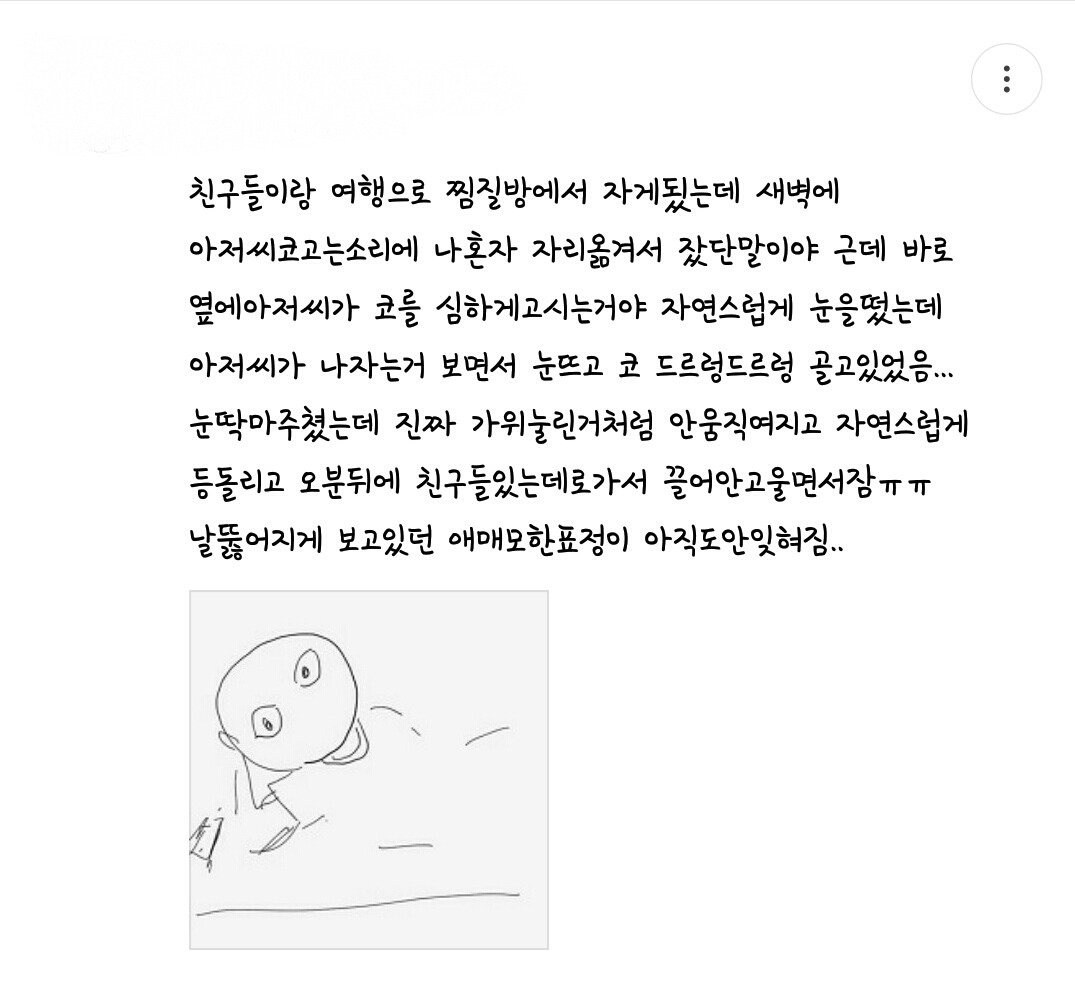 친구들이랑 여행으로 찜질방에서 자게됬는데 새벽에
아저씨코고는소리에 나혼자 자리옮겨서 잤단말이야 근데 바로
옆에아저씨가 코를 심하게고시는거야 자연스럽게 눈을떴는데
아저씨가 나자는거 보면서 눈뜨고 코 드르렁드르렁 골고있었음...
눈딱마주쳤는데 진짜 가위눌린거처럼 안움직여지고 자연스럽게
등돌리고 오분뒤에 친구들있는데로가서 끌어안고울면서잠ㅠㅠ
날뚫어지게 보고있던 애매모한표정이 아직도안잊혀짐..